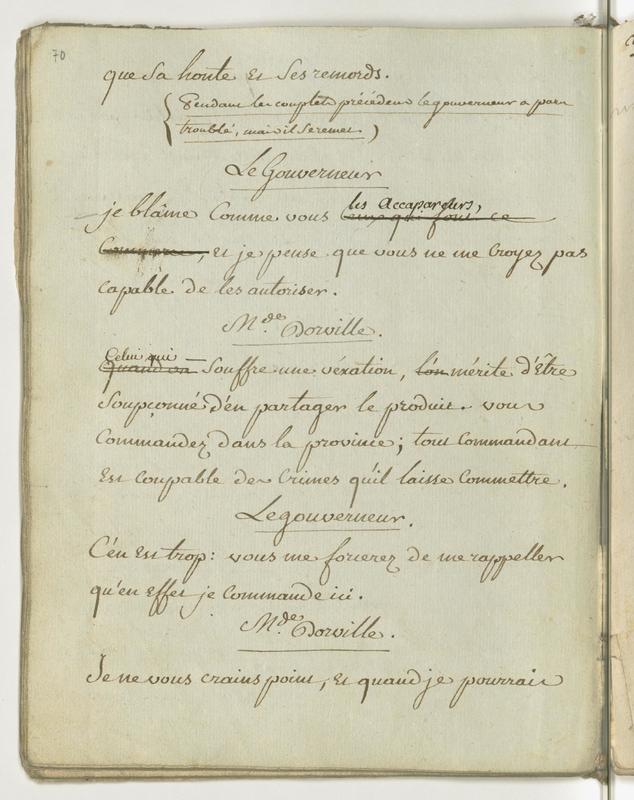 70
que sa honte et ses remords.
(Pendant les couplets précédens le gouverneur a paru
troublé, mais il se remet.)
Le Gouverneur
je blâme comme vous les Accapareurs, ceux qui font ce
Commerce, et je pense que vous ne me croyez pas
capable de les autoriser.
M.de Dorville.
Celui qui Quand on souffre une véxation, l'on mérite d'être
soupçonné d'en partager le produit. vous
commandez dans la province; tout commandant
est coupable des crimes qu'il laisse commettre.
Le gouverneur.
C'en est trop: vous me forcerez de me rappeller
qu'en effet je commande ici.
M.de Dorville.
Je ne vous crains point, et quand je pourrais